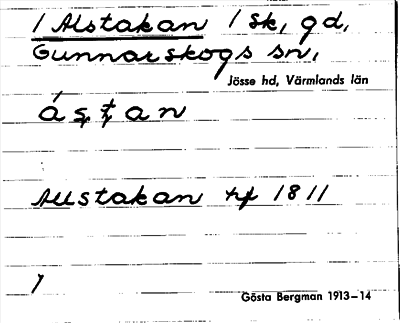 1 Alstakan 1 sk, gd,
Gunnarskogs sn,
Jösse hd, Värmlands län
ású̧tan
Allstakan hf 1811
Gösta Bergman 1913–14